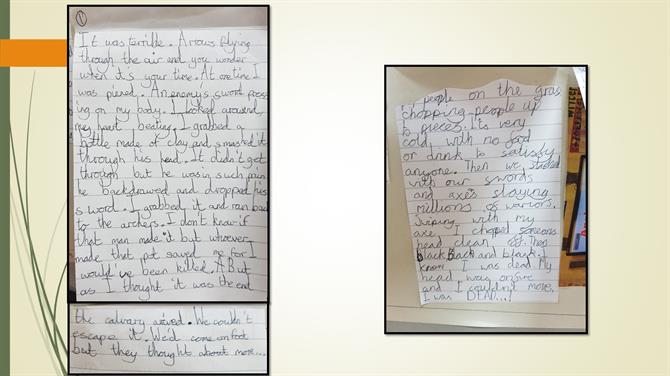 1
It was terrible. Arrows flying
through the air and you wonder
when it's your time. At one time I
was pierced. An enemy's sword poss
ing on my body. I looked around
my heart beating. I grabbed a
bottle made of clay and smashed it
through his head. It didn't get
through but he was in such pain
he backdrawed and dropped his
sword. I grabbed it and ran back
to the archers. I don't know if
that man made it but whoever
made that pot saved me for I
would've been killed. But
as I thought it was the end
the calvary arived. We couldn't
escape it. We'd come on foot
but they thought about more...
people on the gras
chopping people up
to pieces. Its very
cold with no food
or drink to satisfy
anyone. Then we
with our swords
and axes slaying
millions of warriors.
with my
axe. I chopped someons
head clean off. Then
black Black and black. I
know I was dead. My
head was on fire
and I couldn't move.
I was DEAD...!